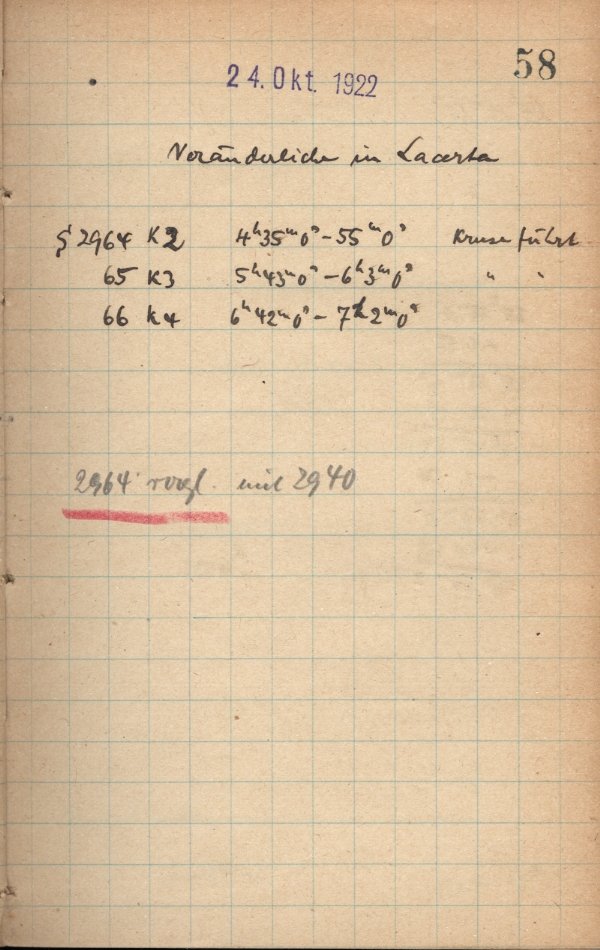 58
24. Okt. 1922
Veränderliche in Lacerta
S 2964 K2 4ʰ35ᵐ0ˢ - 55ᵐ0ˢ Kruse führt
65 K3 5ʰ43ᵐ0ˢ - 6ʰ3ᵐ0ˢ " "
66 K4 6ʰ42ᵐ0ˢ - 7ʰ2ᵐ0ˢ
2964 vergl. mit 2940